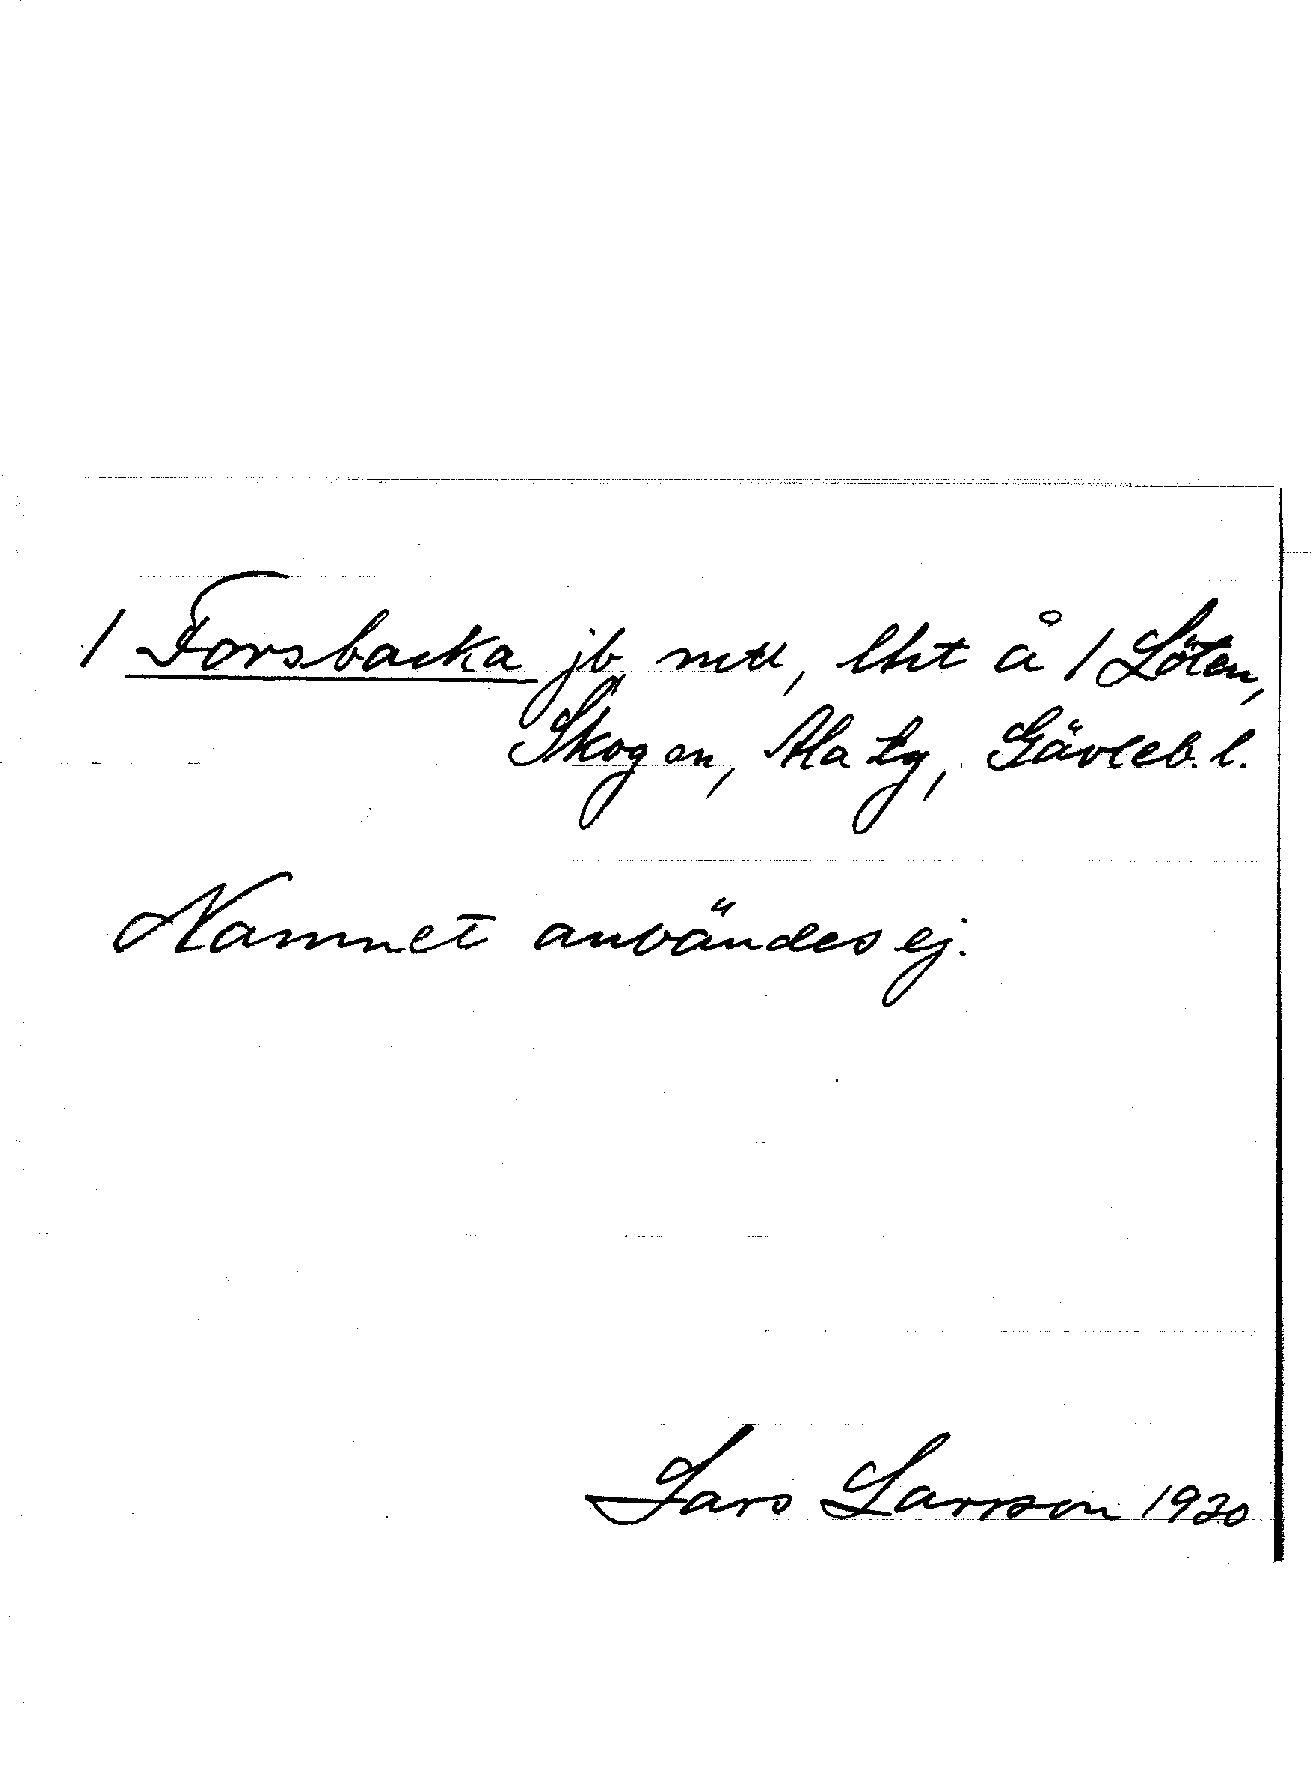 1 Forsbacka jb mtl, lht å 1 Löten,
Skog sn, Ala tg, Gävleb. l.
Namnet användes ej.
Lars Larsson 1930